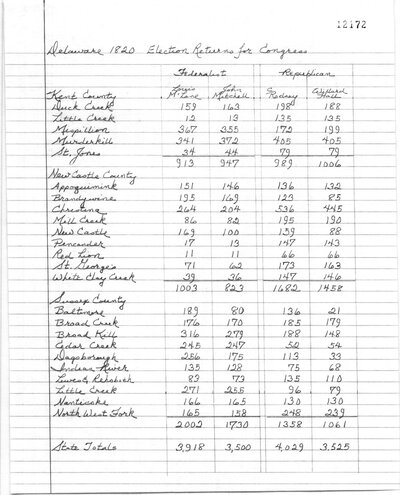 12172
Delaware 1820 Election Returns for Congress
Federalist Republican
Louis McLane John Mitchell Rodney Willard Hall
Kent County
Duck Creek 159 163 198 188
Little Creek 12 13 135 135
Mispillion 367 355 172 199
Murderkill 341 372 405 405
St. Jones 34 44 79 79
913 947 989 1006
New Castle County
Appoquimink 151 146 136 132
Brandywine 195 169 123 85
Christina 264 204 536 445
Mill Creek 86 82 195 190
New Castle 169 100 159 88
Pencander 17 13 147 143
Red Lion 11 11 66 66
St. George's 71 62 173 163
White Clay Creek 39 36 147 146
1003 823 1682 1458
Sussex County
Baltimore 189 80 136 21
Broad Creek 176 170 185 179
Broad Kill 316 279 188 148
Cedar Creek 245 247 52 54
Dagsborough 256 175 113 33
Indian River 135 128 75 68
Lewes & Rehoboth 83 73 135 110
Little Creek 271 255 96 79
Nanticoke 166 165 130 130
North West Fork 165 158 248 239
2002 1730 1358 1061
State Totals 3,918 3,500 4,029 3,525